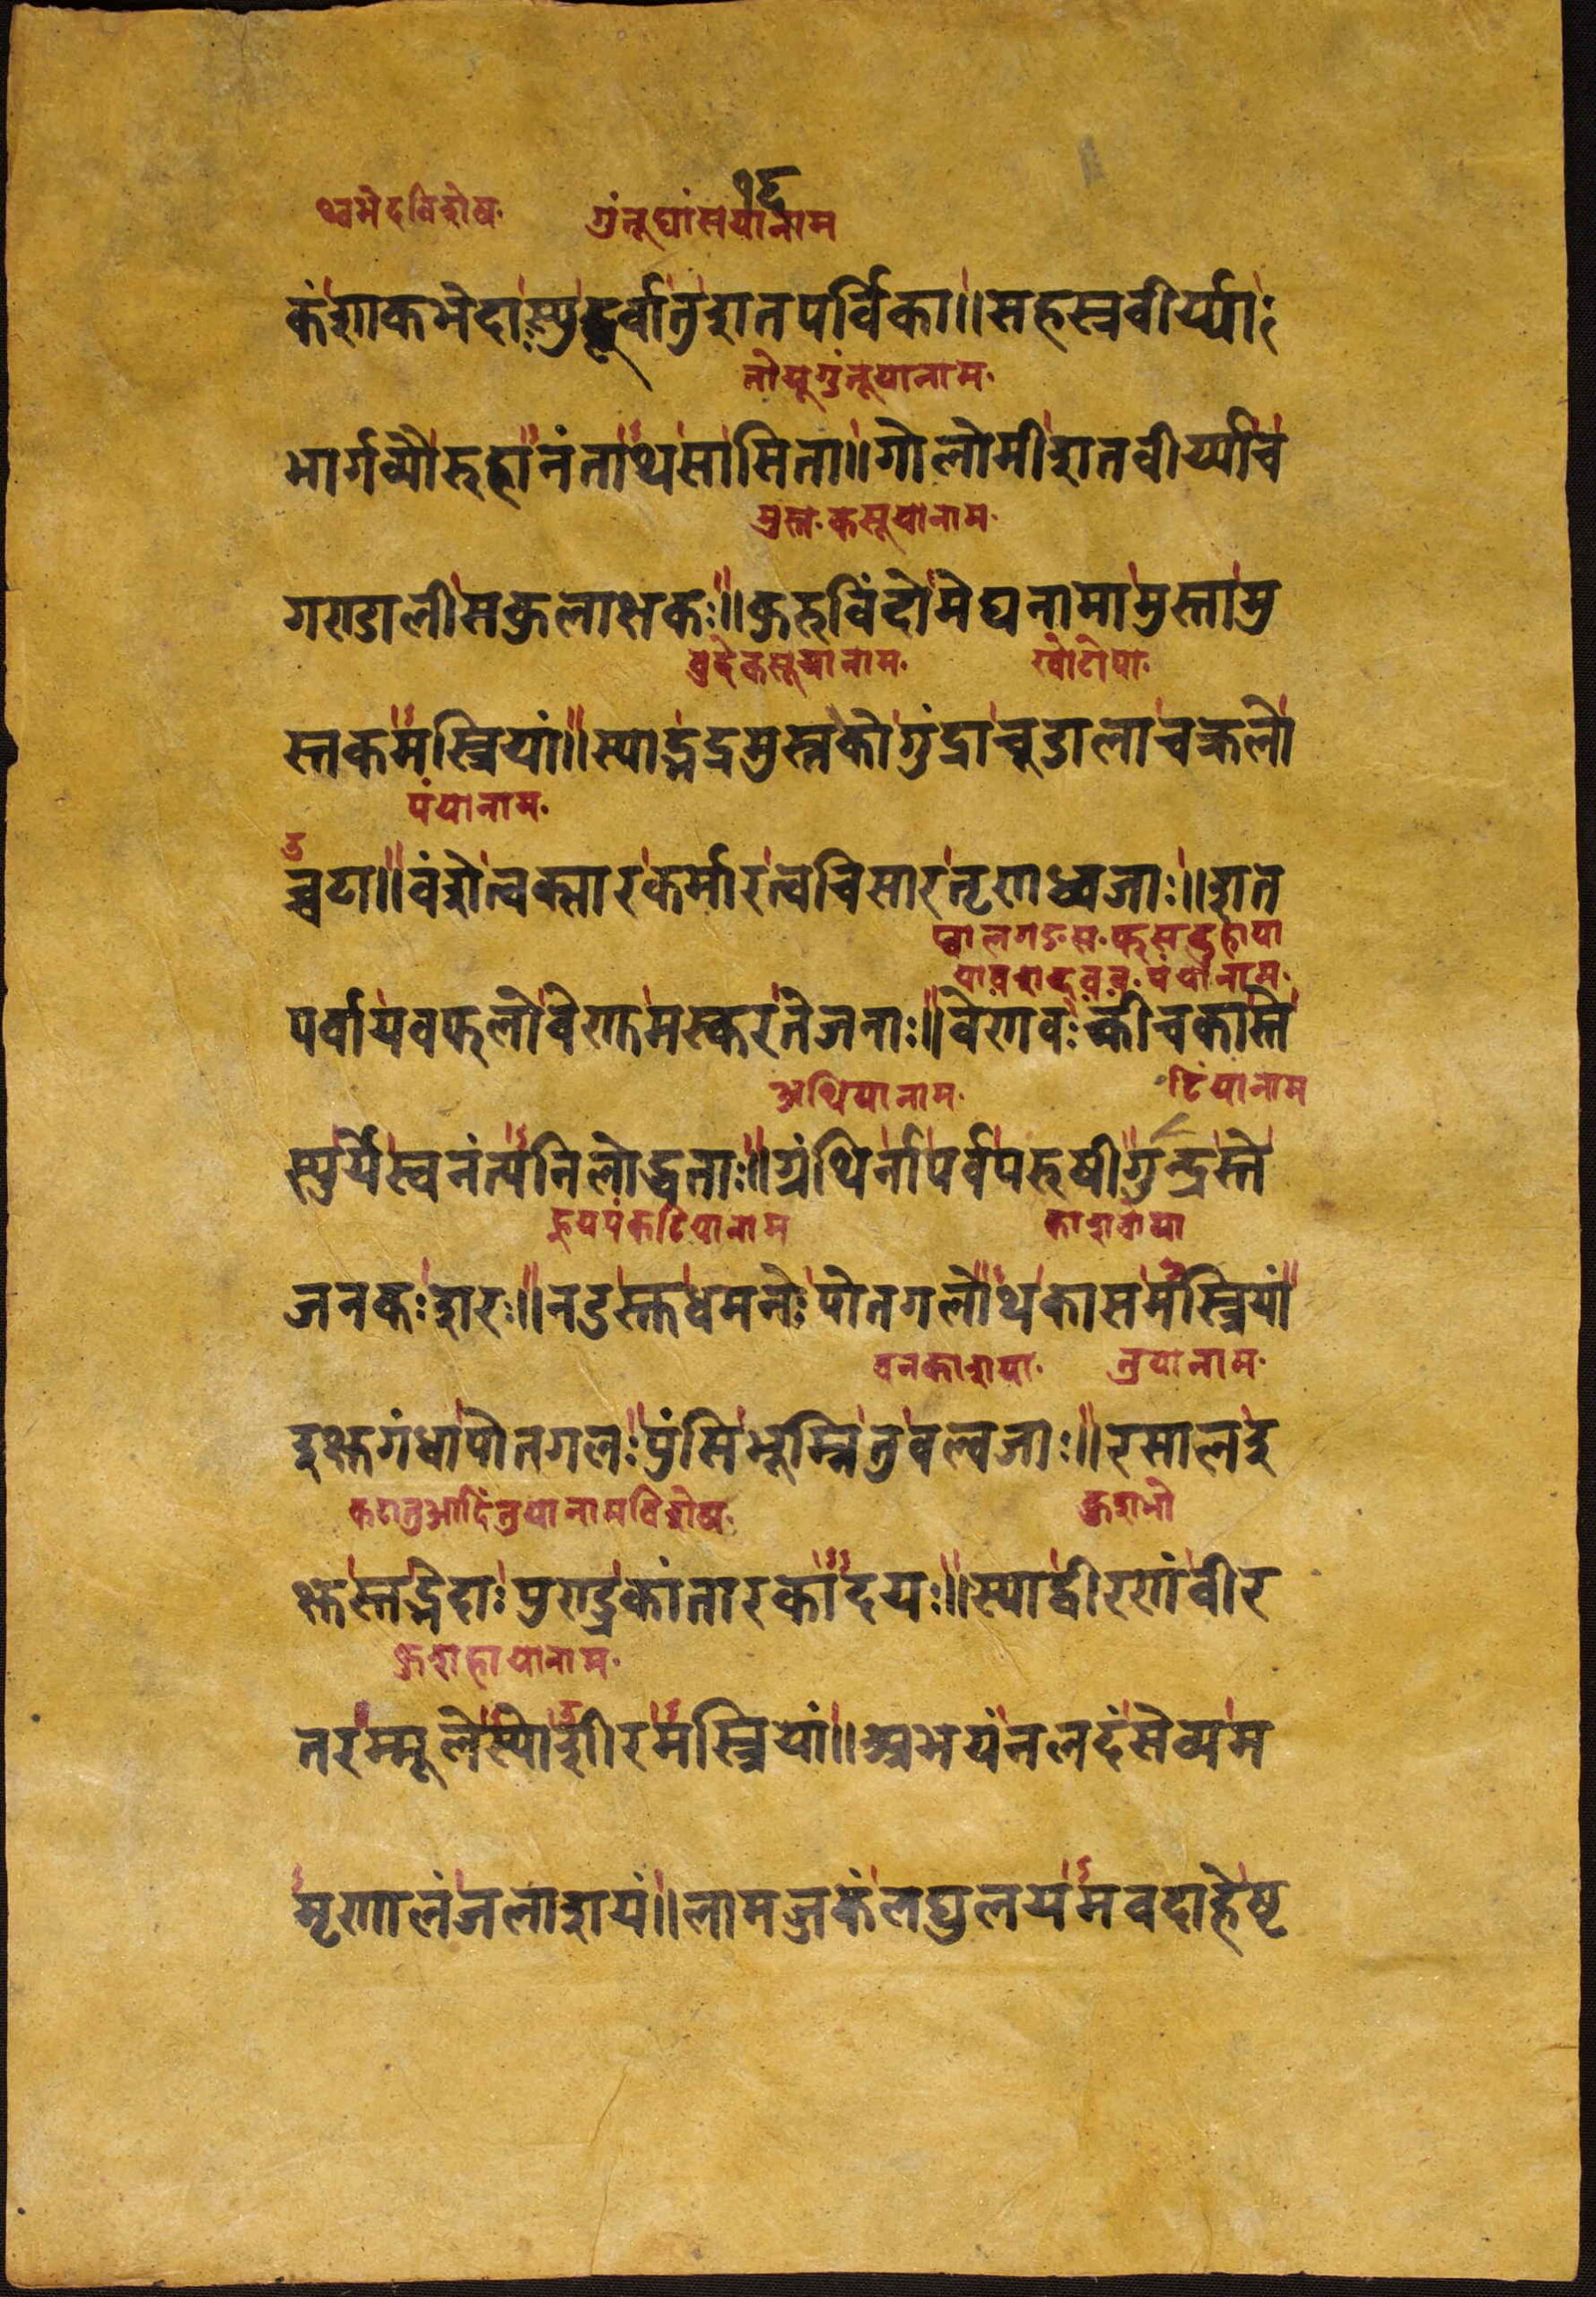 थ्वभेदविशेष्य. गुंनूघांसयानाम
कंशाकभेदास्युर्द्दूर्वातुशतपर्विका॥सहस्रवीर्य्या
नोयूगुंनूयानाम.
भार्गव्यौरुहानंताथसासिता॥गोलोमीशतवीर्य्याच
मुस्त.कसूयानाम.
गण्डालीमकुलाक्षकः॥कुरुविंदोमेघनामामुस्तामु
कसूयानाम.
स्तकमस्त्रियां॥स्याद्भद्रमुस्तकोगुंद्राचूडालाचक्रलो
पंयानाम.
च्चटा॥वंशोत्वक्सारकर्मारत्वचिसारतृणध्वजाः॥शत
पर्वायवफलोवेणुमस्करतेजनाः॥वेणवःकीचकास्ते
अथियानाम. टिंयानाम
स्युर्येस्वनंत्यनिलोद्धताः॥ग्रंथिर्नापर्वपरुषीगुन्द्रस्ते
जनकःशरः॥नडस्तुधमनःपोतगलोथकासमस्त्रियां
वनकाशया. तुयानाम.
इक्षुगंधापोतगलःपुंसिभूम्नितुवल्वजाः॥रसालइ
कठातुआदिंतुयानामविशेष्य.
क्षुस्तद्भेदाःपुण्ड्रकांतारकादयः॥स्याद्वीरणंवीर
कुशाहायानाम.
तरम्मूलेस्योशीरमस्त्रियां॥अभयंनलदंसेव्यम
मृणालंजलाशयं॥लामज्जकंलघुलयमवदाहेष्ट